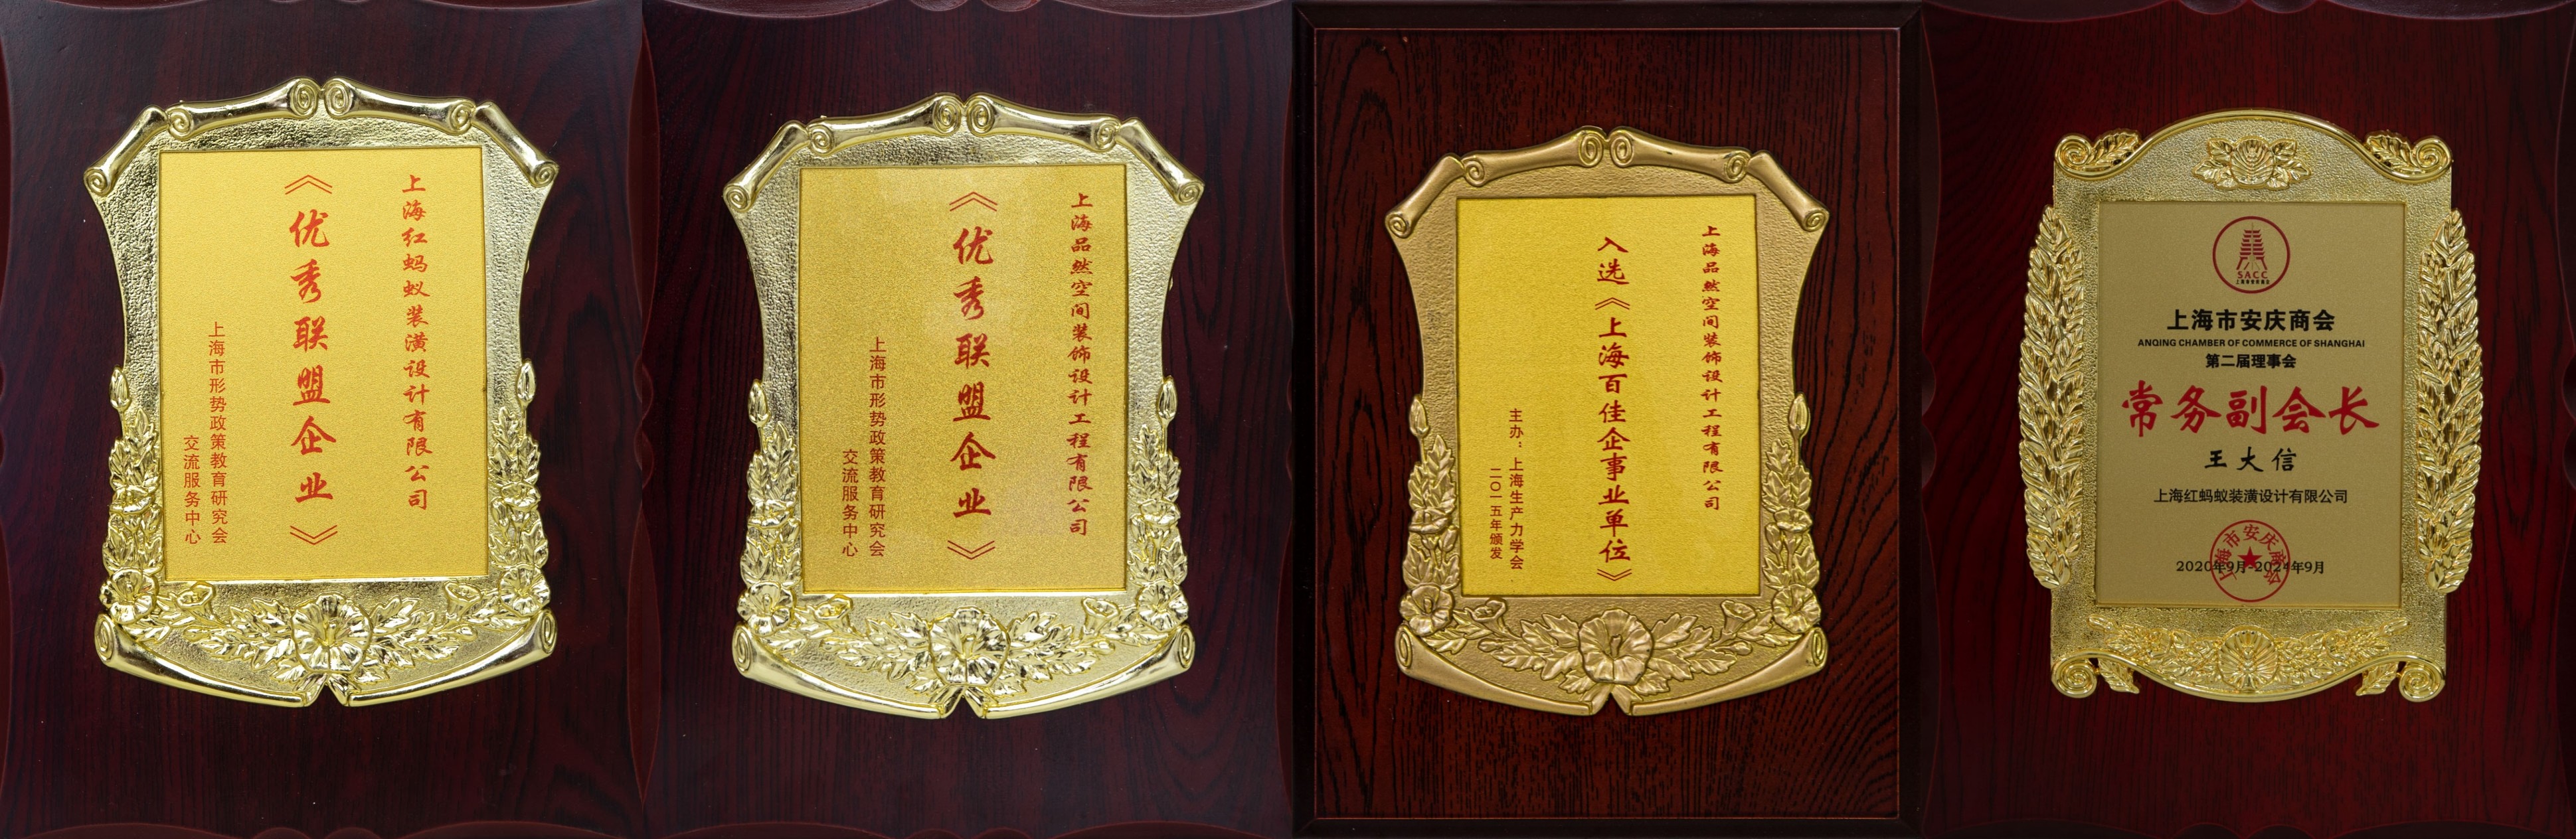 上海红蚂蚁装潢设计有限公司
《优秀联盟企业》
上海市形势政策教育研究会
交流服务中心
上海品然空间装饰设计工程有限公司
《优秀联盟企业》
上海市形势政策教育研究会
交流服务中心
上海品然空间装饰设计工程有限公司
入选《上海百佳企事业单位》
主办：上海生产力学会
二〇一五年颁发
SACC
上海市安庆商会
ANQING CHAMBER OF COMMERCE OF SHANGHAI
第二届理事会
常务副会长
王大信
上海红蚂蚁装潢设计有限公司
上海市安庆商会
2020年9月-2024年9月